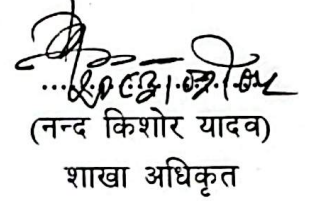 (नन्द किशोर यादव)
शाखा अधिकृत